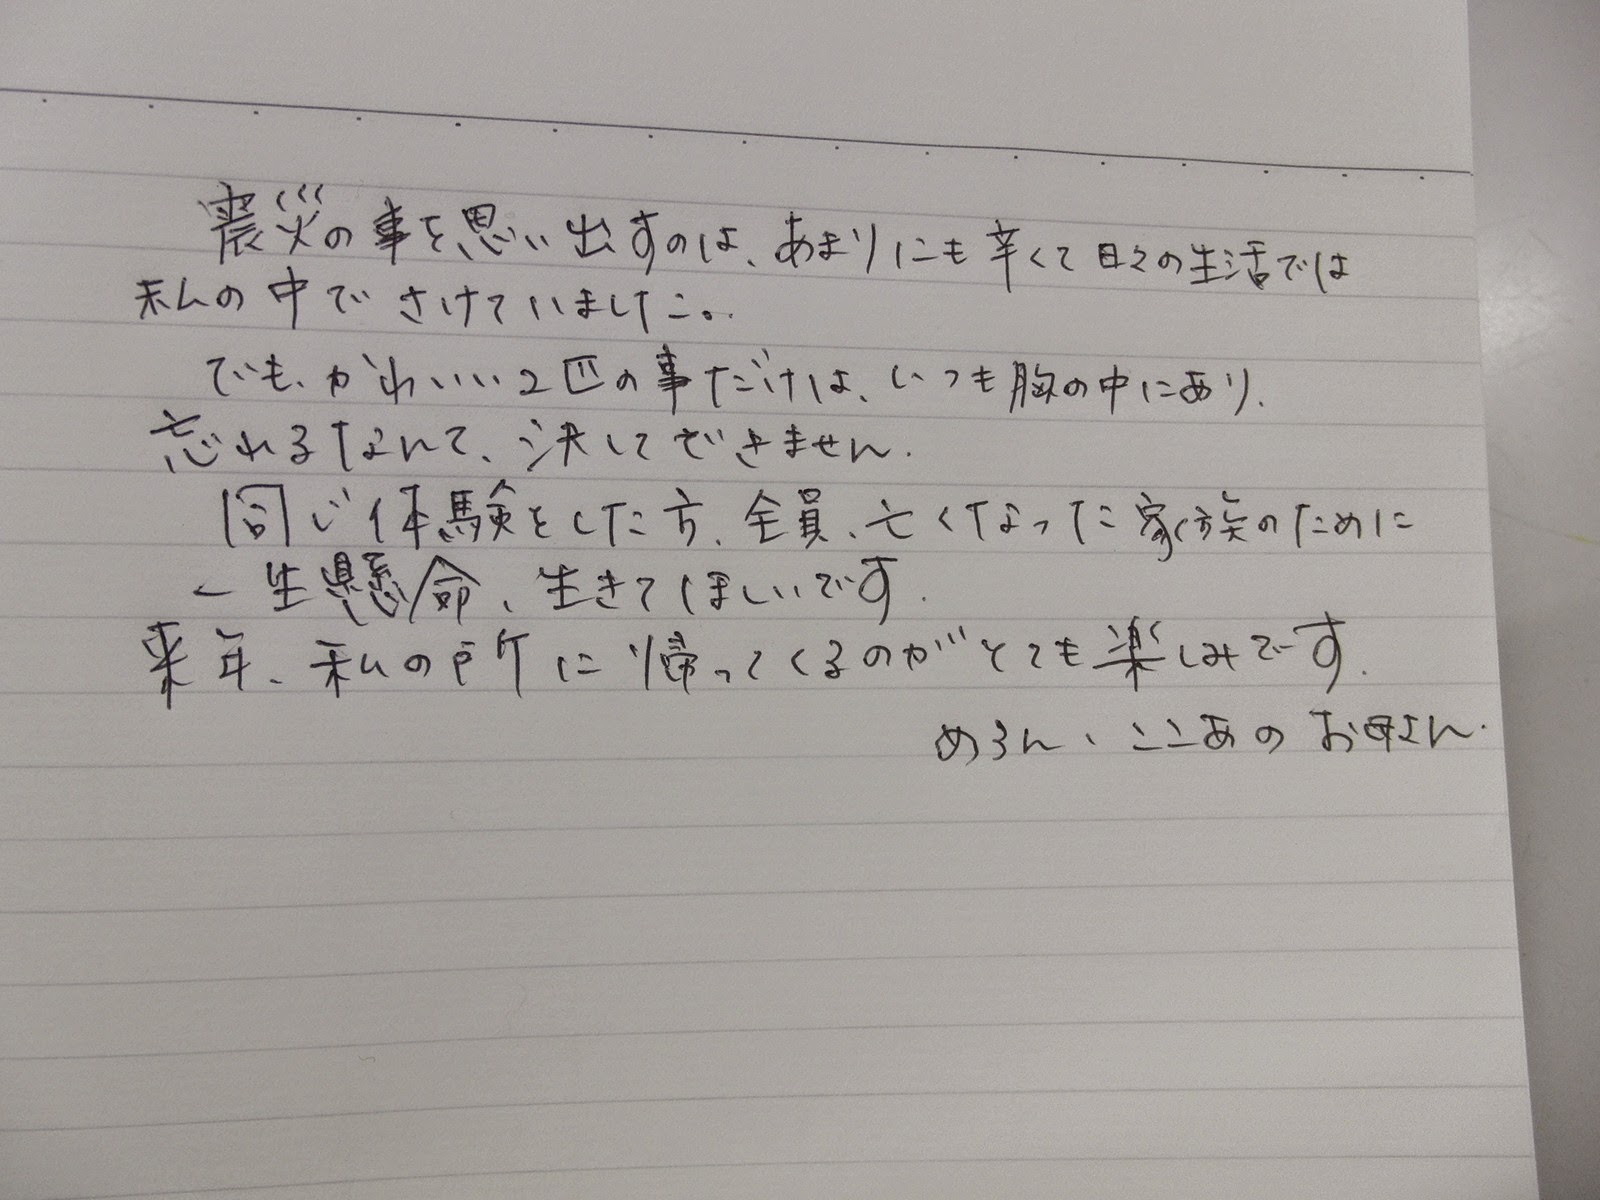 震災の事を思い出すのは、あまりにも辛くて日々の生活では
私の中でさけていました。
でも、かわいい2匹の事だけは、いつも胸の中にあり、
忘れるなんて、決してできません。
同じ体験をした方、全員、亡くなった家族のために
一生懸命、生きてほしいです。
来年、私の所に帰ってくるのがとても楽しみです。
めろん、ここあのお母さん。